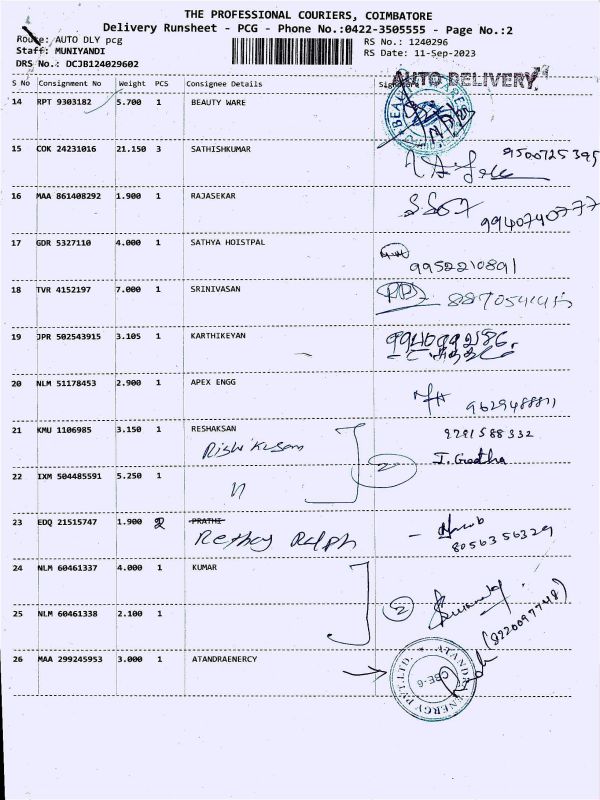 THE PROFESSIONAL COURIERS, COIMBATORE
Delivery Runsheet - PCG - Phone No.:0422-3505555 - Page No.:2
Route: AUTO DLY pcg
RS No.: 1240296
Staff: MUNIYANDI
RS Date: 11-Sep-2023
DRS No.: DCJB124029602
AUTO DELIVERY
S No Consignment No Weight PCS Consignee Details
14 RPT 9303182 5.700 1 BEAUTY WARE
15 COK 24231016 21.150 3 SATHISHKUMAR
16 MAA 861408292 1.900 1 RAJASEKAR 9940740777
17 GDR 5327110 4.000 1 SATHYA HOISTPAL 9952210891
18 TVR 4152197 7.000 1 SRINIVASAN
19 JPR 502543915 3.105 1 KARTHIKEYAN
20 NLM 51178453 2.900 1 APEX ENGG
21 KMU 1106985 3.150 1 RESHAKSAN
2
I. Geetha
22 IXM 504485591 5.250 1
23 EDQ 21515747 1.900 2 PRATHI
Ralph
8056356329
24 NLM 60461337 4.000 1 KUMAR
2
25 NLM 60461338 2.100 1
(8220097748)
26 MAA 299245953 3.000 1 ATANDRAENERGY
ATANDRA ENERGY PVT.LTD. CBE-6